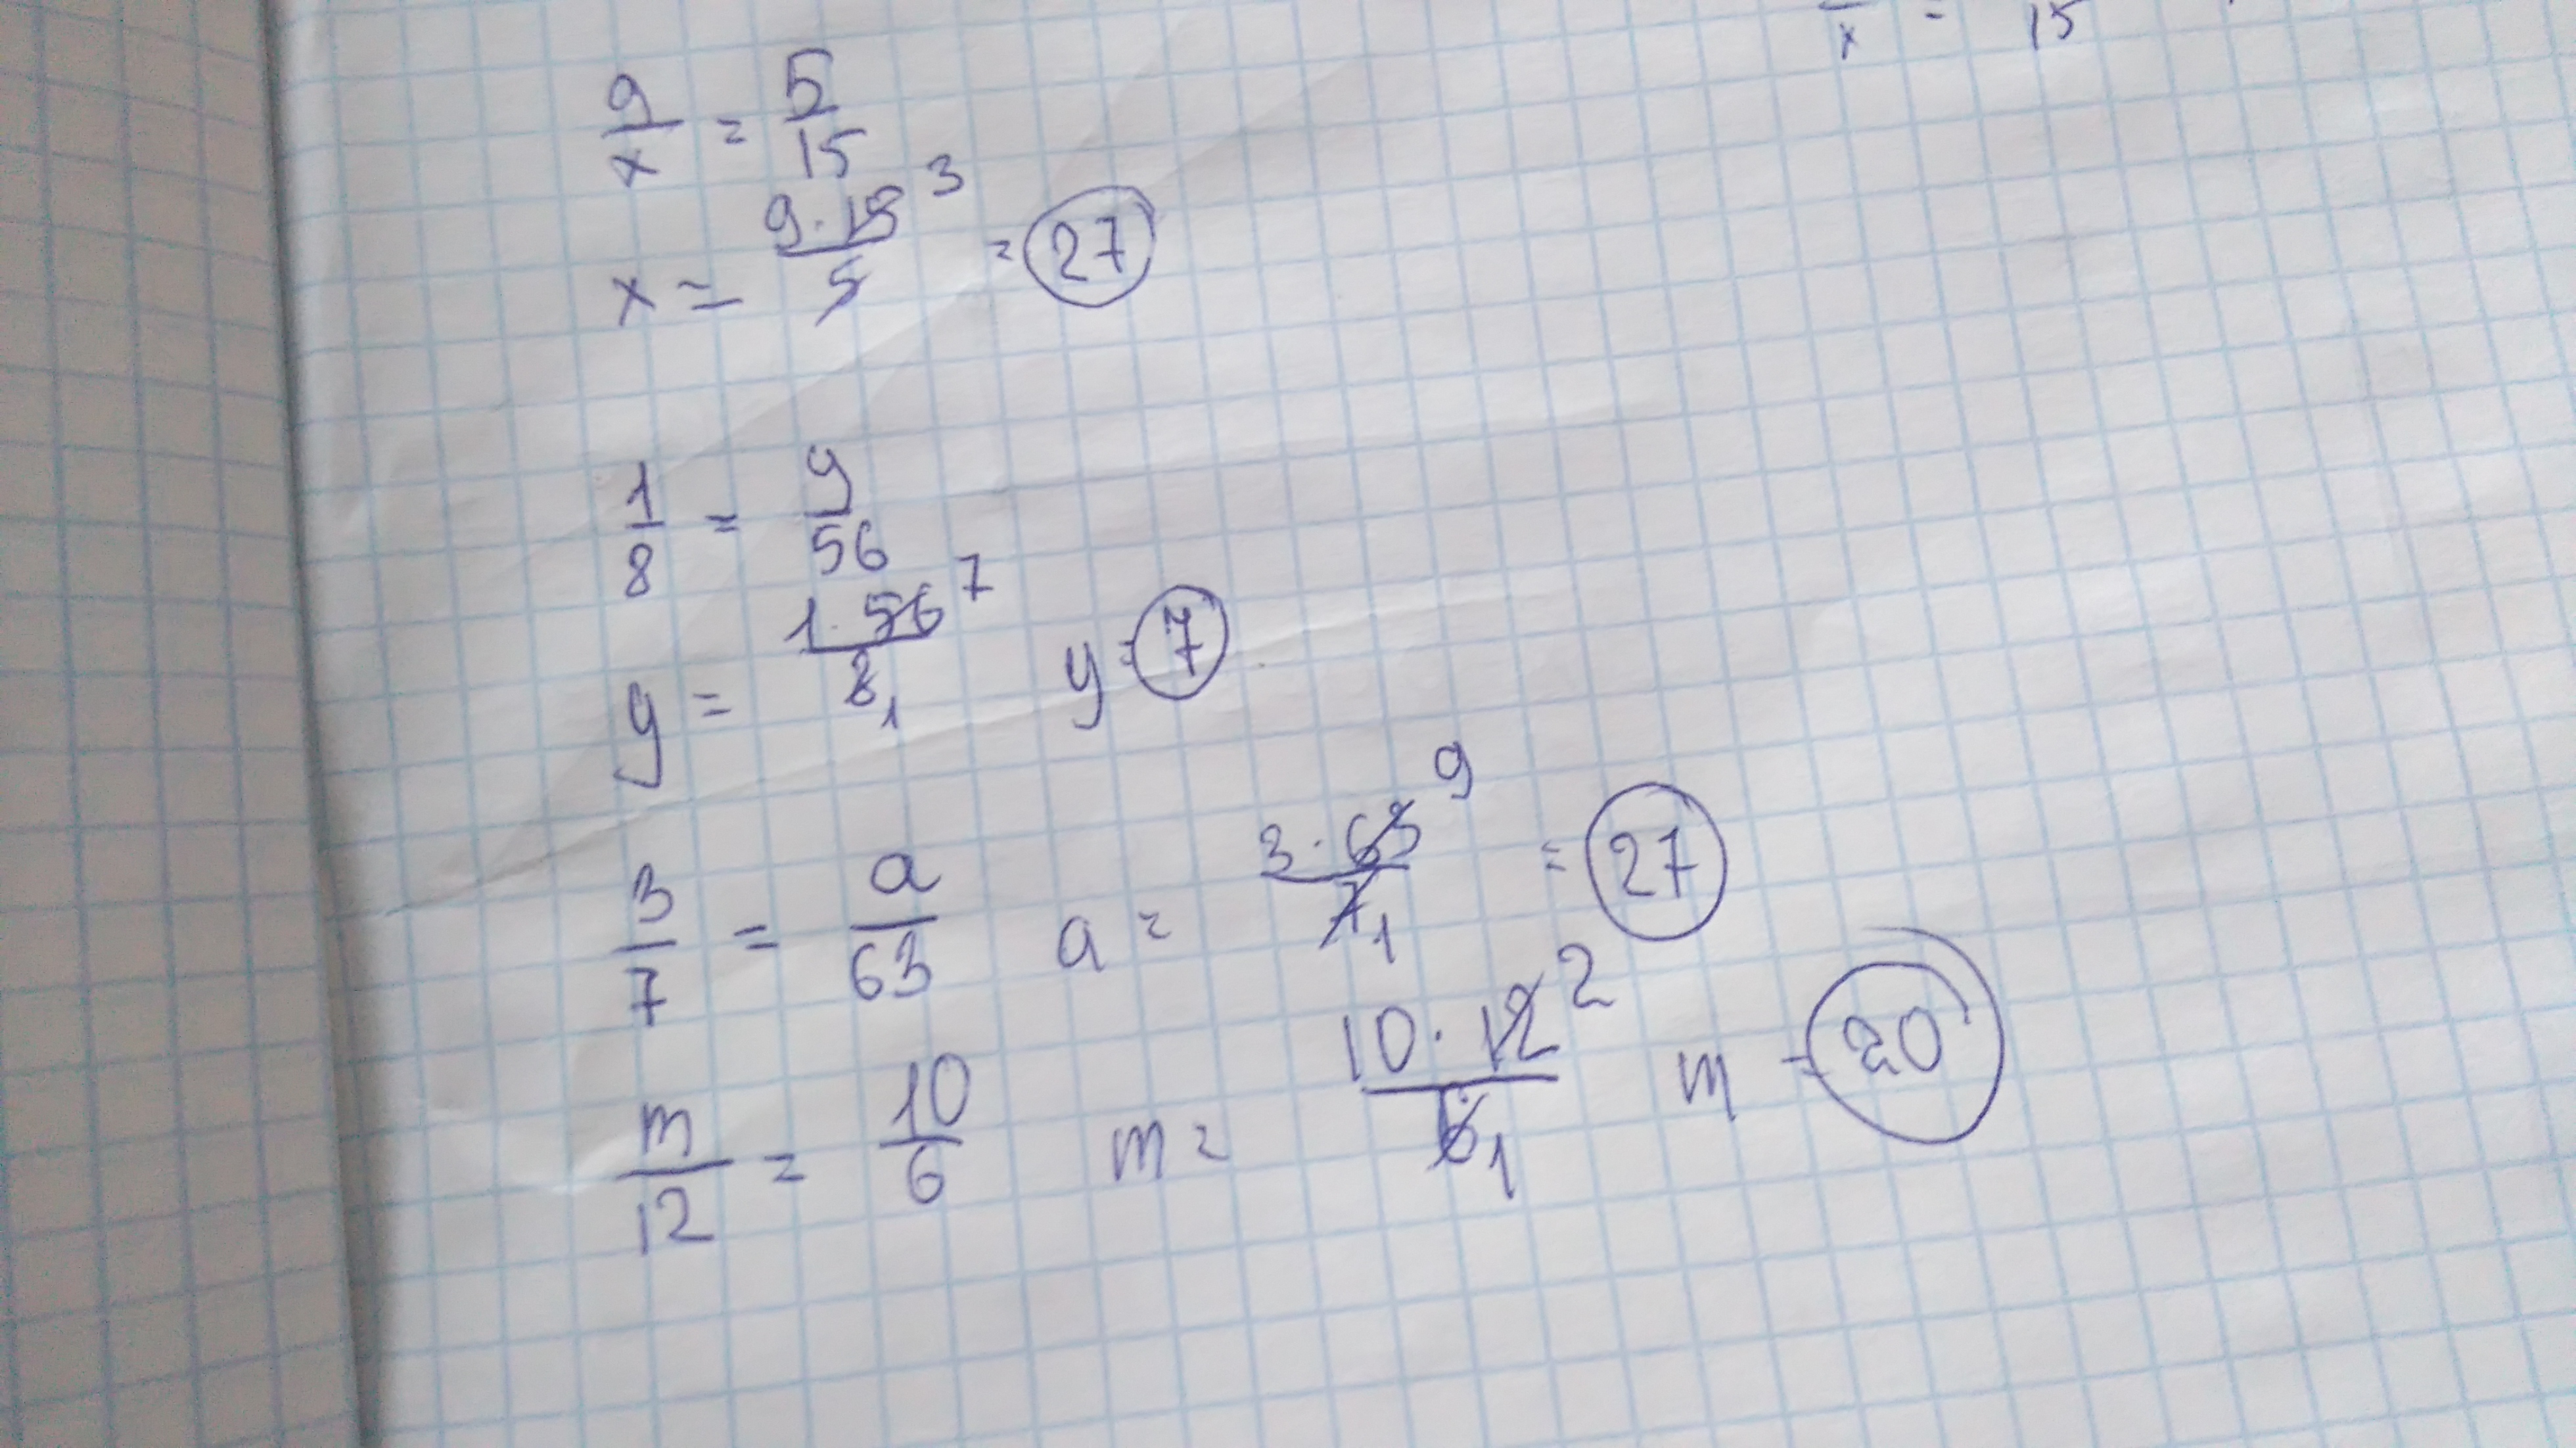 x = 15
9/x = 5/15
x = 9·15 3/5 = 27
1/8 = y/56
y = 1·56 7/8 1 y = 7
3/7 = a/63 a = 3·63 9/7 1 = 27
m/12 = 10/6 m = 10·12 2/6 1 m = 20